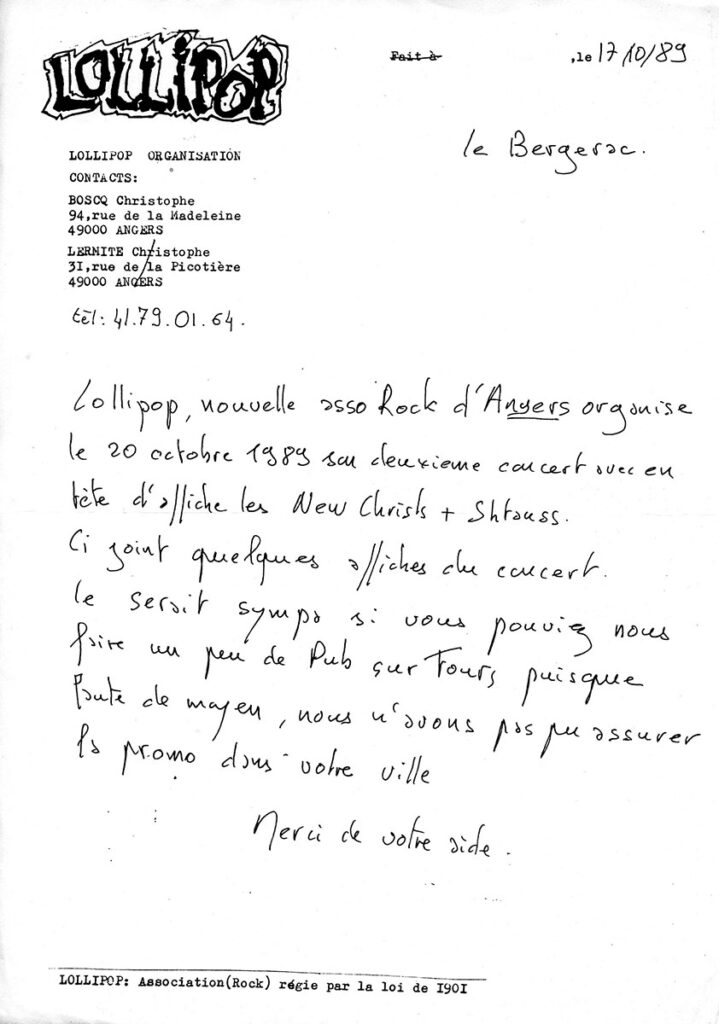 LOLLIPOP
Fait à ,le 17/10/89
le Bergerac.
LOLLIPOP ORGANISATION
CONTACTS:
BOSCQ Christophe
94,rue de la Madeleine
49000 ANGERS
LERMITE Christophe
3I,rue de la Picotière
49000 ANGERS
tèl: 41.79.01.64.
Lollipop, nouvelle asso Rock d'Angers organise
le 20 octobre 1989 son deuxieme concert avec en
tête d'affiche les New Christs + Shtauss.
Ci joint quelques affiches du concert.
Ce serait sympa si vous pouviez nous
faire un peu de Pub sur Tours puisque
faute de moyen, nous n'avons pas pu assurer
la promo dans votre ville
Merci de votre aide.
LOLLIPOP: Association(Rock) régie par la loi de I90I